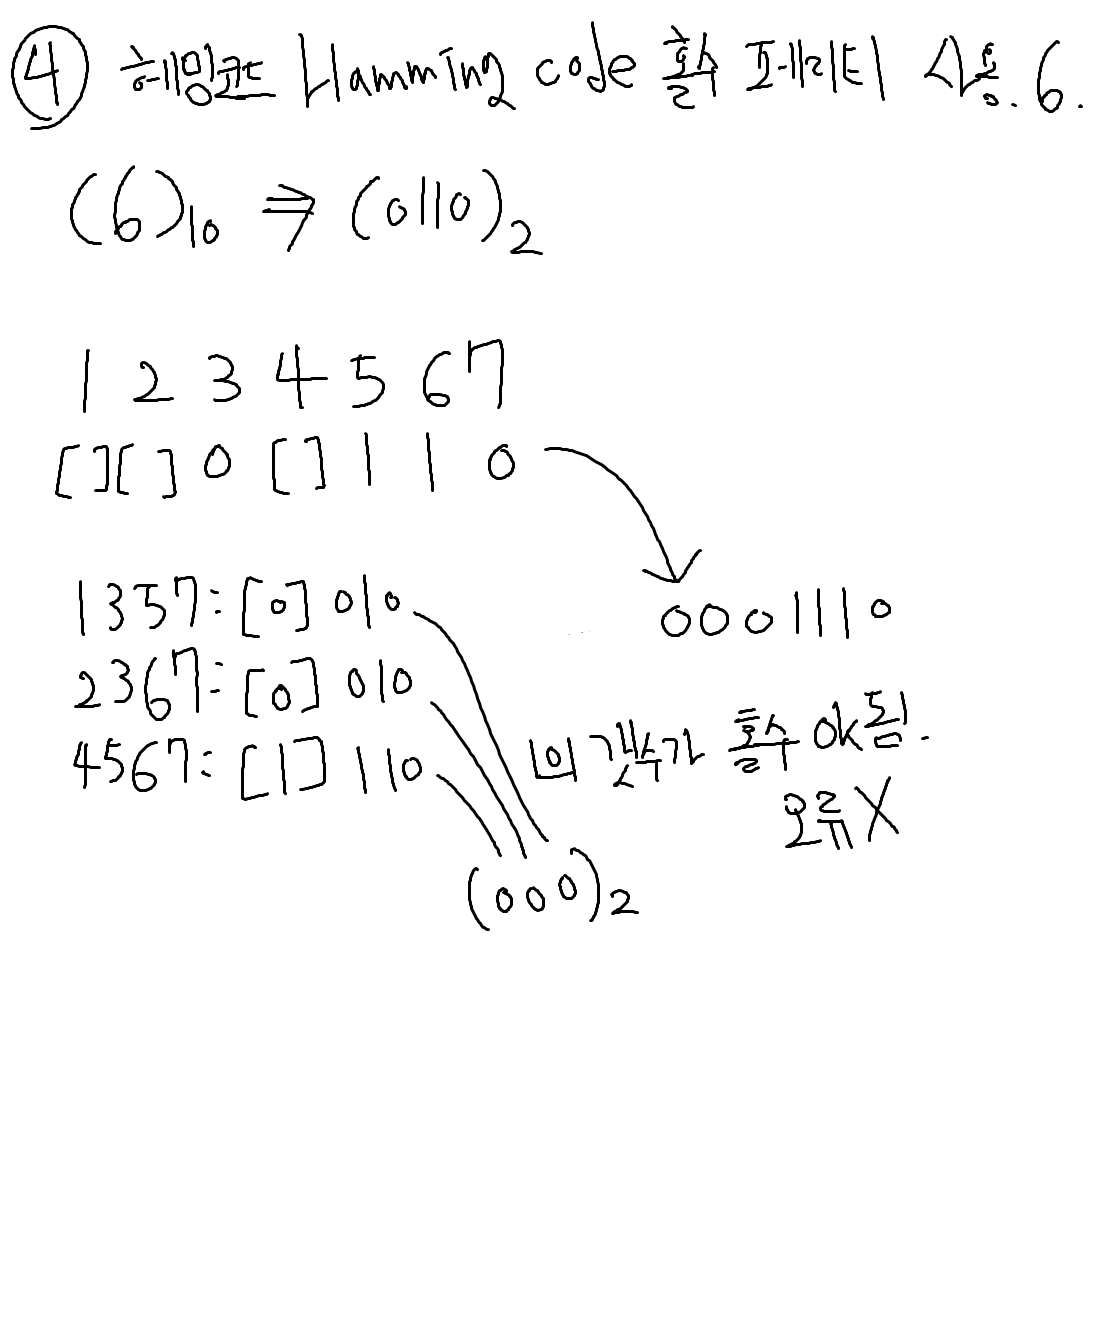 ④ 헤밍코드 Hamming code 홀수 패리티 사용. 6.
(6)10 ⇒ (0110)2
1 2 3 4 5 6 7
[ ][ ] 0 [ ] 1 1 0
1357: [0] 010
0001110
2367: [0] 010
4567: [1] 110
1의 갯수가 홀수 ok됨.
오류X
(000)2